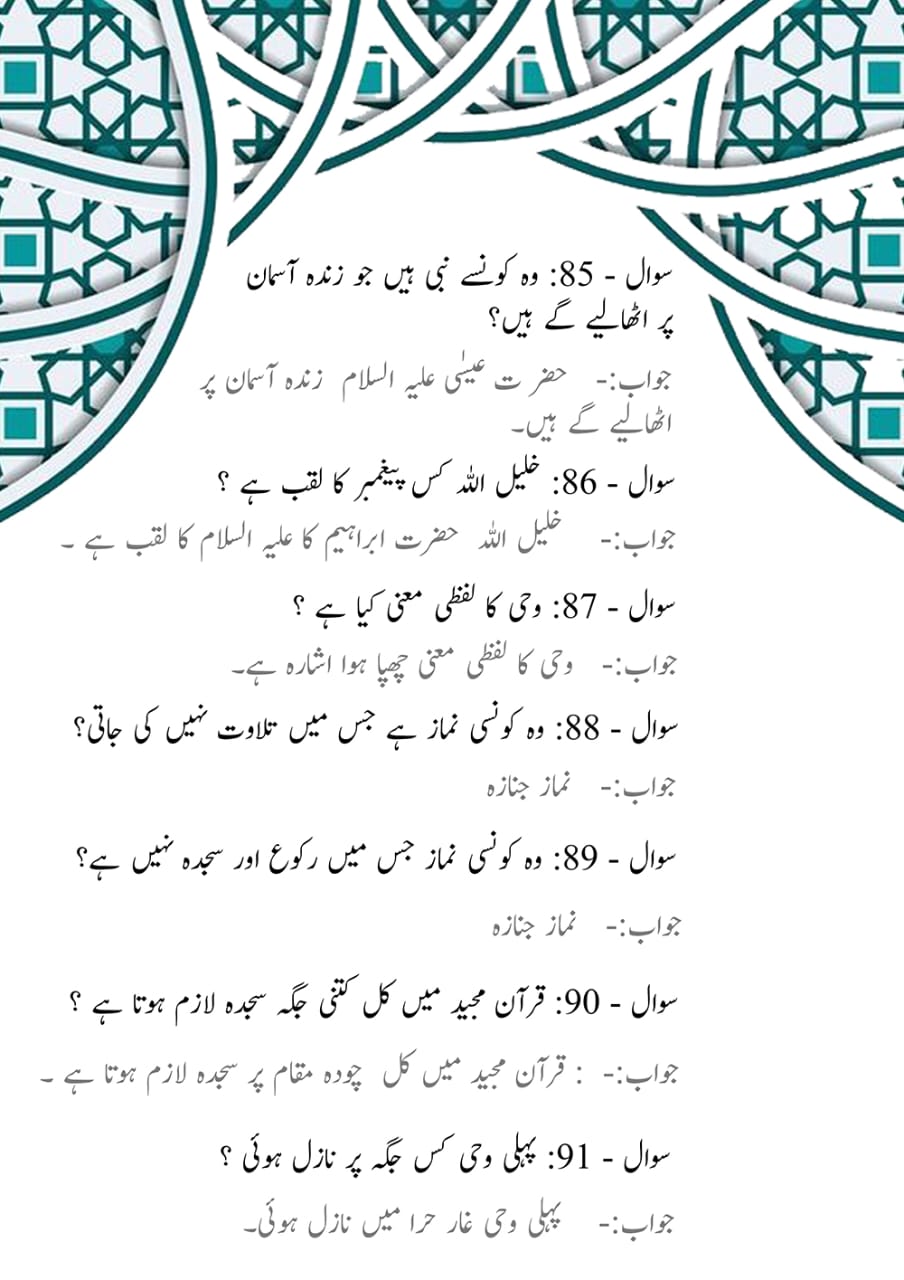 سوال - 85: وہ کونسے نبی ہیں جو زندہ آسمان
پر اٹھالیے گے ہیں؟
جواب:- حضر ت عیسٰی علیہ السلام زندہ آسمان پر
اٹھالیے گے ہیں۔
سوال - 86: خلیل اللہ کس پیغمبر کا لقب ہے ؟
جواب:- خلیل اللہ حضرت ابراہیم کا علیہ السلام کا لقب ہے ۔
سوال - 87: وحی کا لفظی معنی کیا ہے ؟
جواب:- وحی کا لفظی معنی چھپا ہوا اشارہ ہے۔
سوال - 88: وہ کونسی نماز ہے جس میں تلاوت نہیں کی جاتی؟
جواب:- نماز جنازہ
سوال - 89: وہ کونسی نماز جس میں رکوع اور سجدہ نہیں ہے؟
جواب:- نماز جنازہ
سوال - 90: قرآن مجید میں کل کتنی جگہ سجدہ لازم ہوتا ہے ؟
جواب:- : قرآن مجید میں کل چودہ مقام پر سجدہ لازم ہوتا ہے ۔
سوال - 91: پہلی وحی کس جگہ پر نازل ہوئی ؟
جواب:- پہلی وحی غار حرا میں نازل ہوئی۔